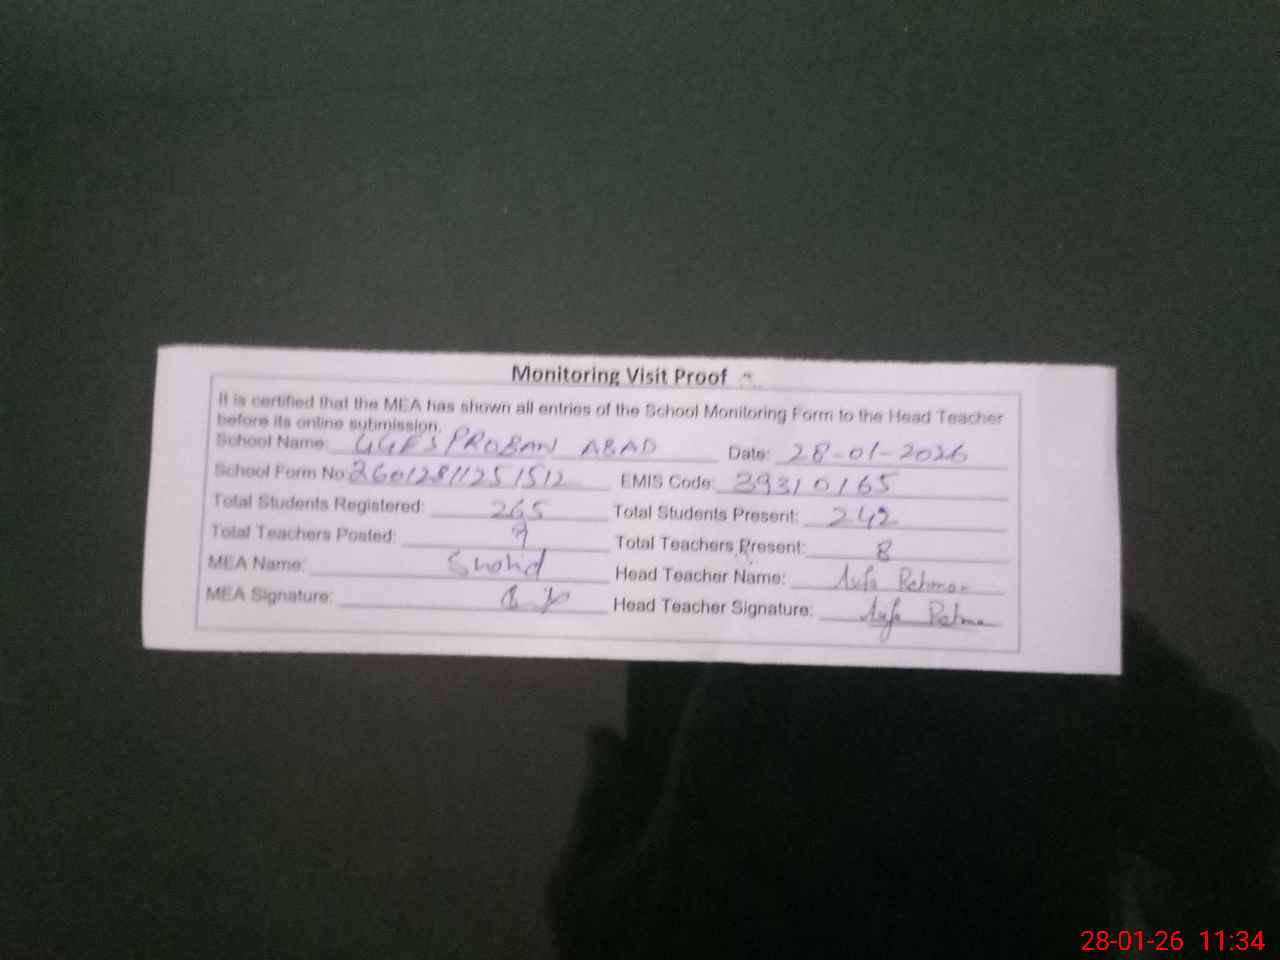 Monitoring Visit Proof
It is certified that the MEA has shown all entries of the School Monitoring Form to the Head Teacher
before its online submission.
School Name: GGES PROBAN ABAD Date: 28-01-2026
School Form No: 26012811251512 EMIS Code: 39310165
Total Students Registered: 265 Total Students Present: 242
Total Teachers Posted: 9 Total Teachers Present: 8
MEA Name: Shahid Head Teacher Name: Rehman
MEA Signature: Head Teacher Signature:
28-01-26 11:34